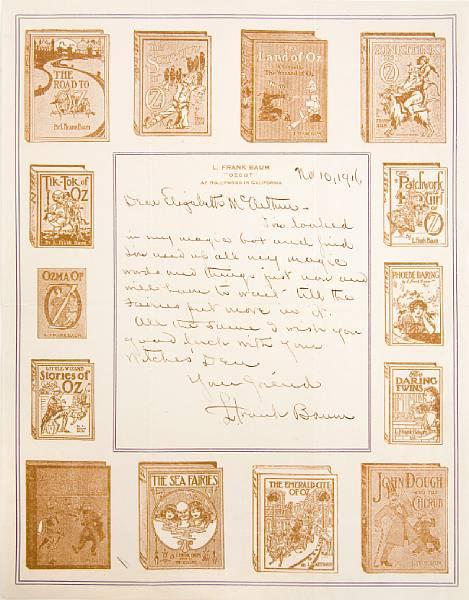 THE ROAD TO OZ
By L. Frank Baum
THE
SCARECROW
OF
OZ
The
Land of Oz
RINKITINK
IN
OZ
TIK-TOK of
OZ
By L. FRANK BAUM
L. FRANK BAUM
"OZCOT"
AT HOLLYWOOD IN CALIFORNIA
Nov 10, 1916
Dear Elizabeth McArthur -
I've looked
in my magic box and find
I've used up all my magic
words and things just now and
will have to wait till the
Fairies put more in it.
All the same I wish you
good luck with your
Witches' Den
Your friend
L Frank Baum
The
Patchwork
Girl
of
OZ
OZMA OF
OZ
PHOEBE DARING
LITTLE WIZARD
Stories of
OZ
The
DARING
TWINS
L. FRANK
BAUM
THE SEA FAIRIES
THE EMERALD CITY
OF OZ
JOHN DOUGH
AND THE
CHERUB